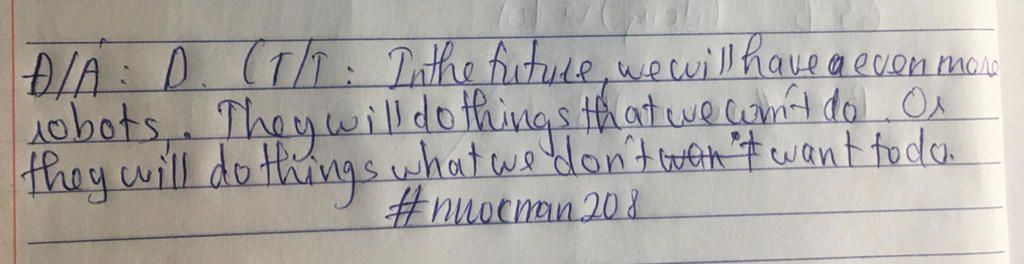 Đ/A: D. (T/T: In the future, we will have a even more
robots. They will do things that we can't do. Or
they will do things what we don't want to do.
#nuocman208